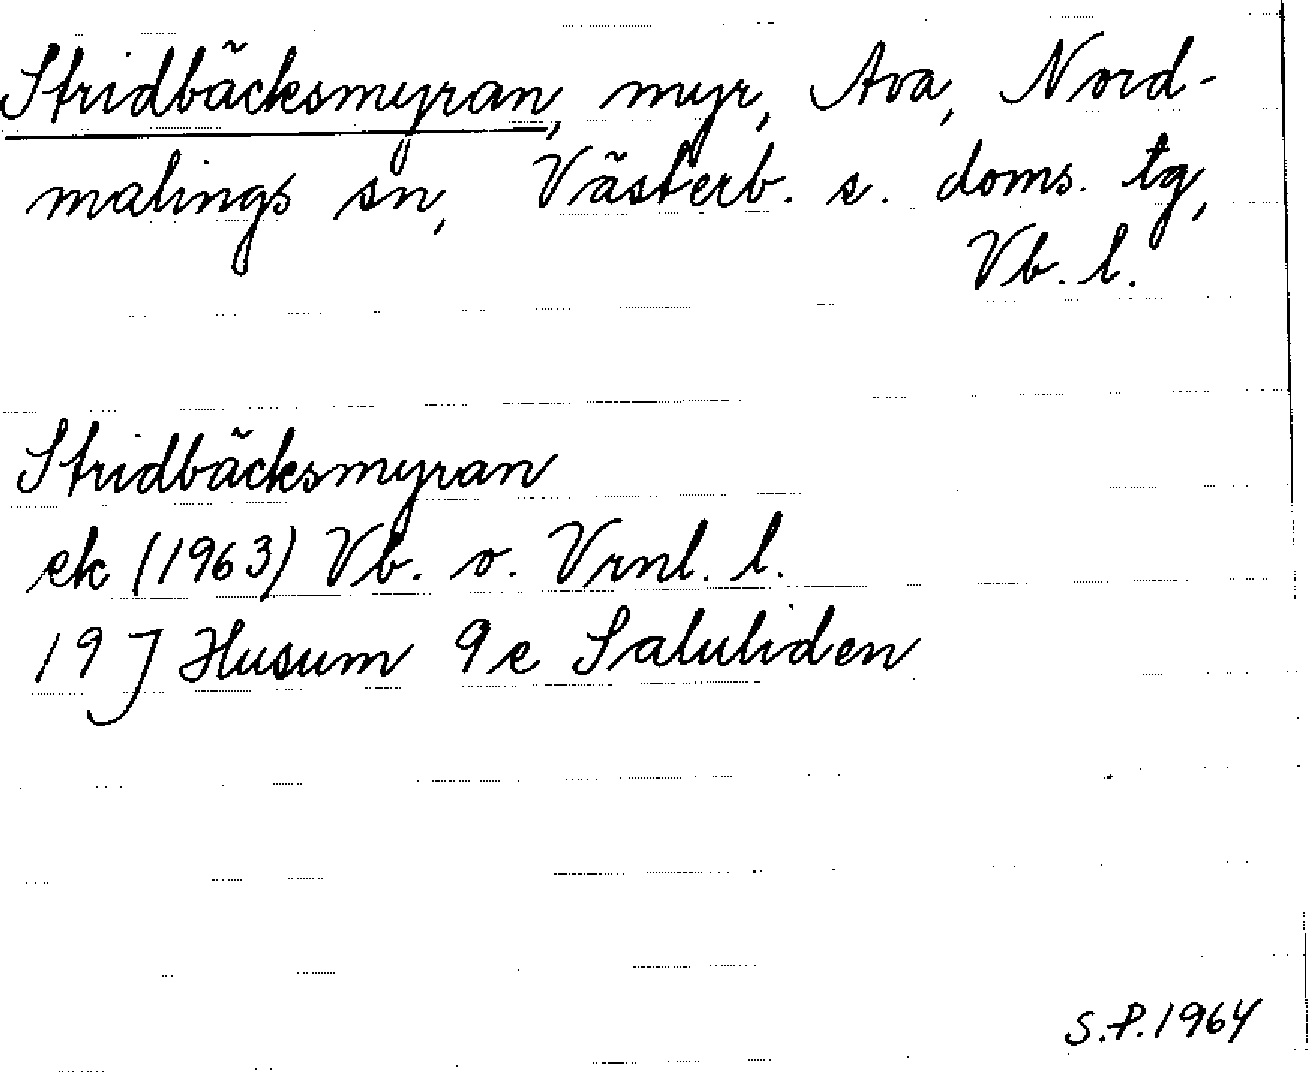 Stridbäcksmyran, myr, Ava, Nord-
malings sn, Västerb. s. doms. tg,
Vb. l.
Stridbäcksmyran
ek (1963) Vb. o. Vrnl. l.
19 J Husum 9e Saluliden
S.P. 1964